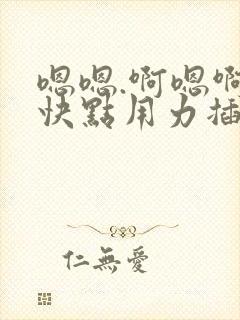 嗯嗯.啊嗯啊
快點用力插
仁無愛